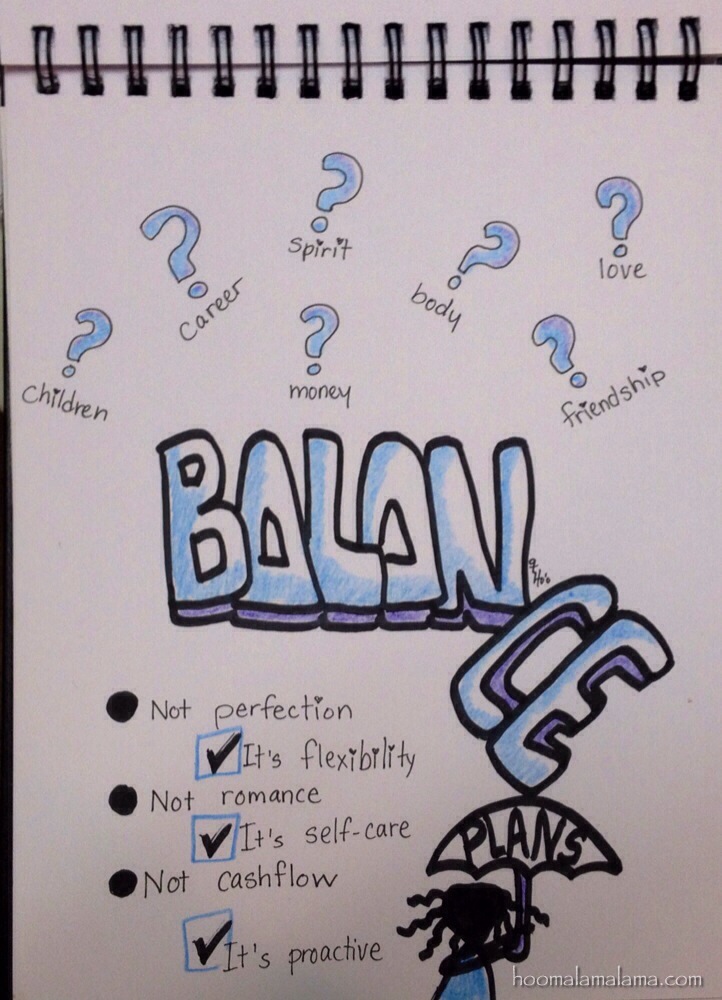 Spirit
love
career
body
children
money
friendship
BALANCE
Not perfection
It's flexibility
Not romance
It's self-care
Not cashflow
It's proactive
PLANS
hoomalamalama.com